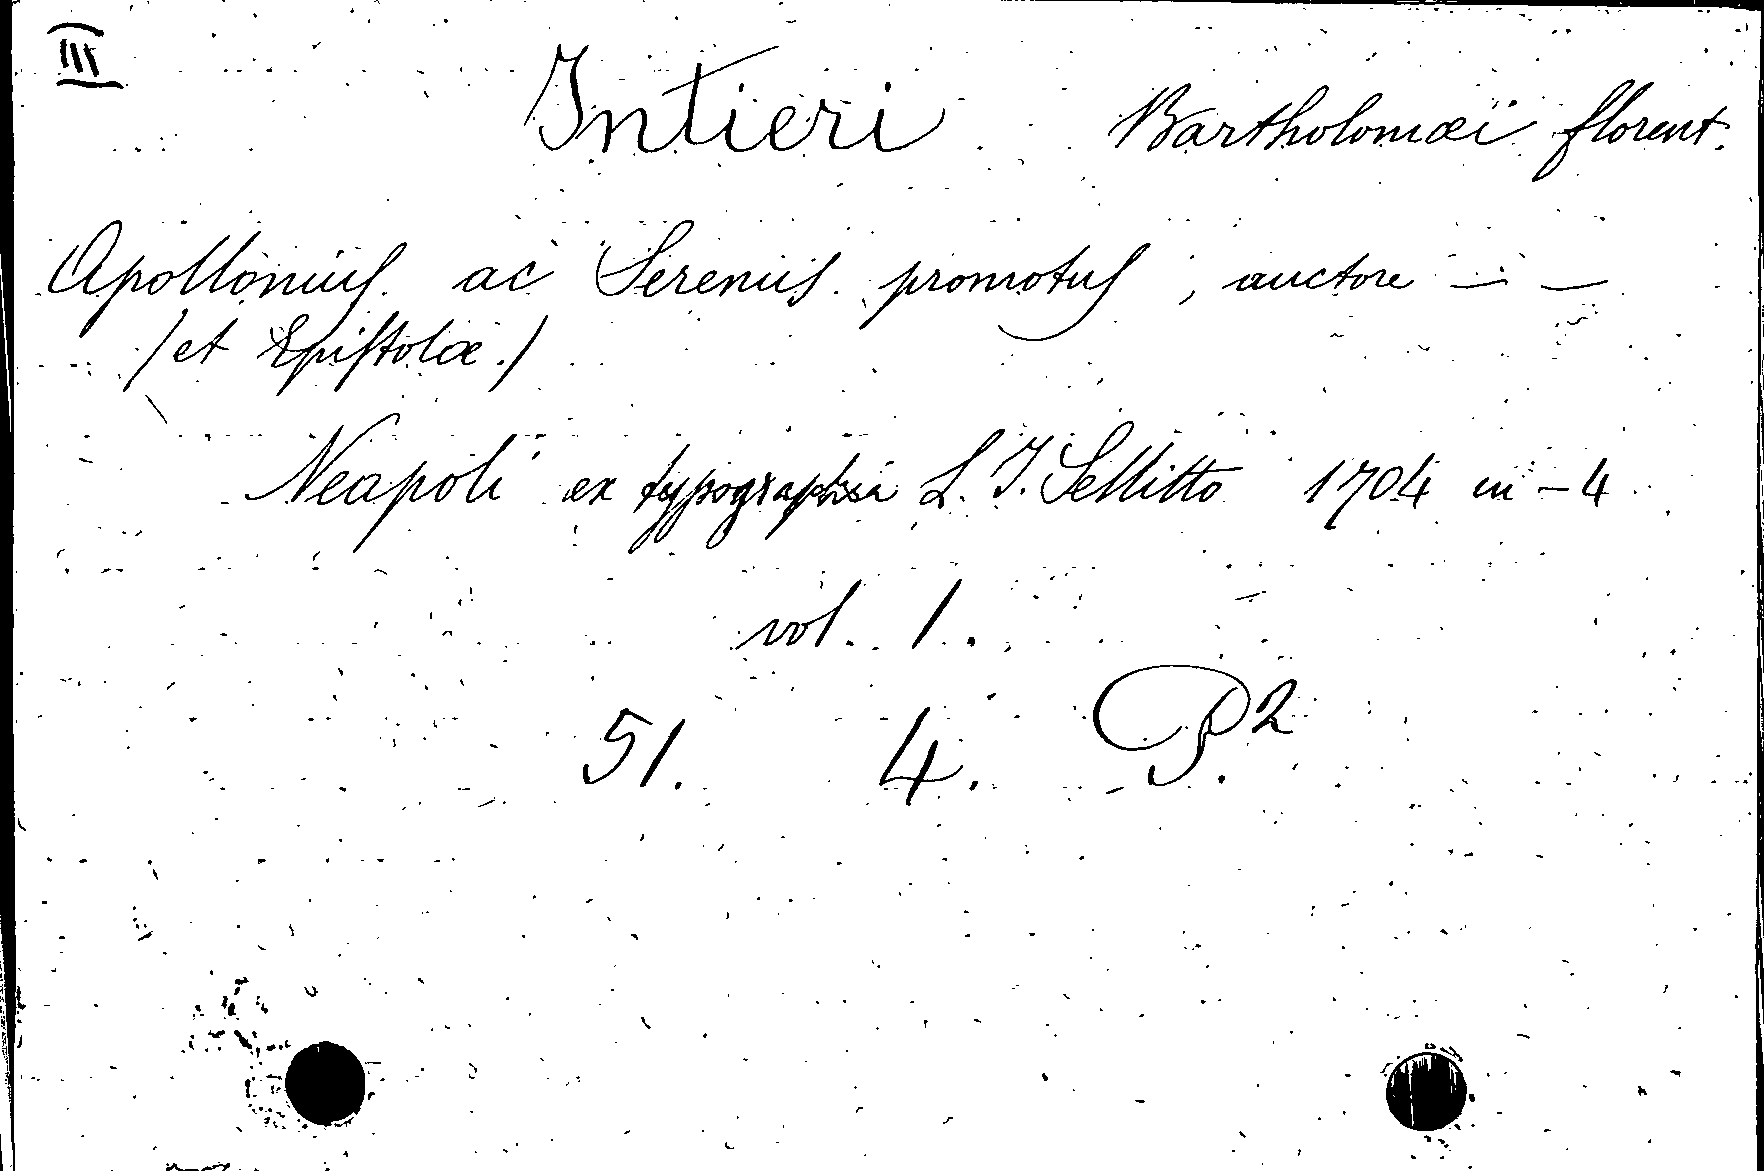 III
Intieri Bartholomæi florent.
Apollonius ac Serenus promotus, auctore — —
(et Epistolæ.)
Neapoli ex typographia L. J. Sellitto 1704 in-4
vol. 1.
51. 4. P.2